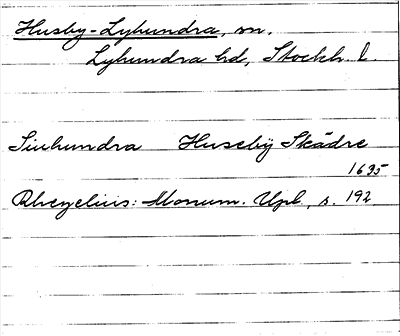 Husby-Lyhundra, sn.
Lyhundra hd, Stockh. l.
Siuhundra Huseby Skädre
1635
Rhezelius: Monum. Upl., s. 192